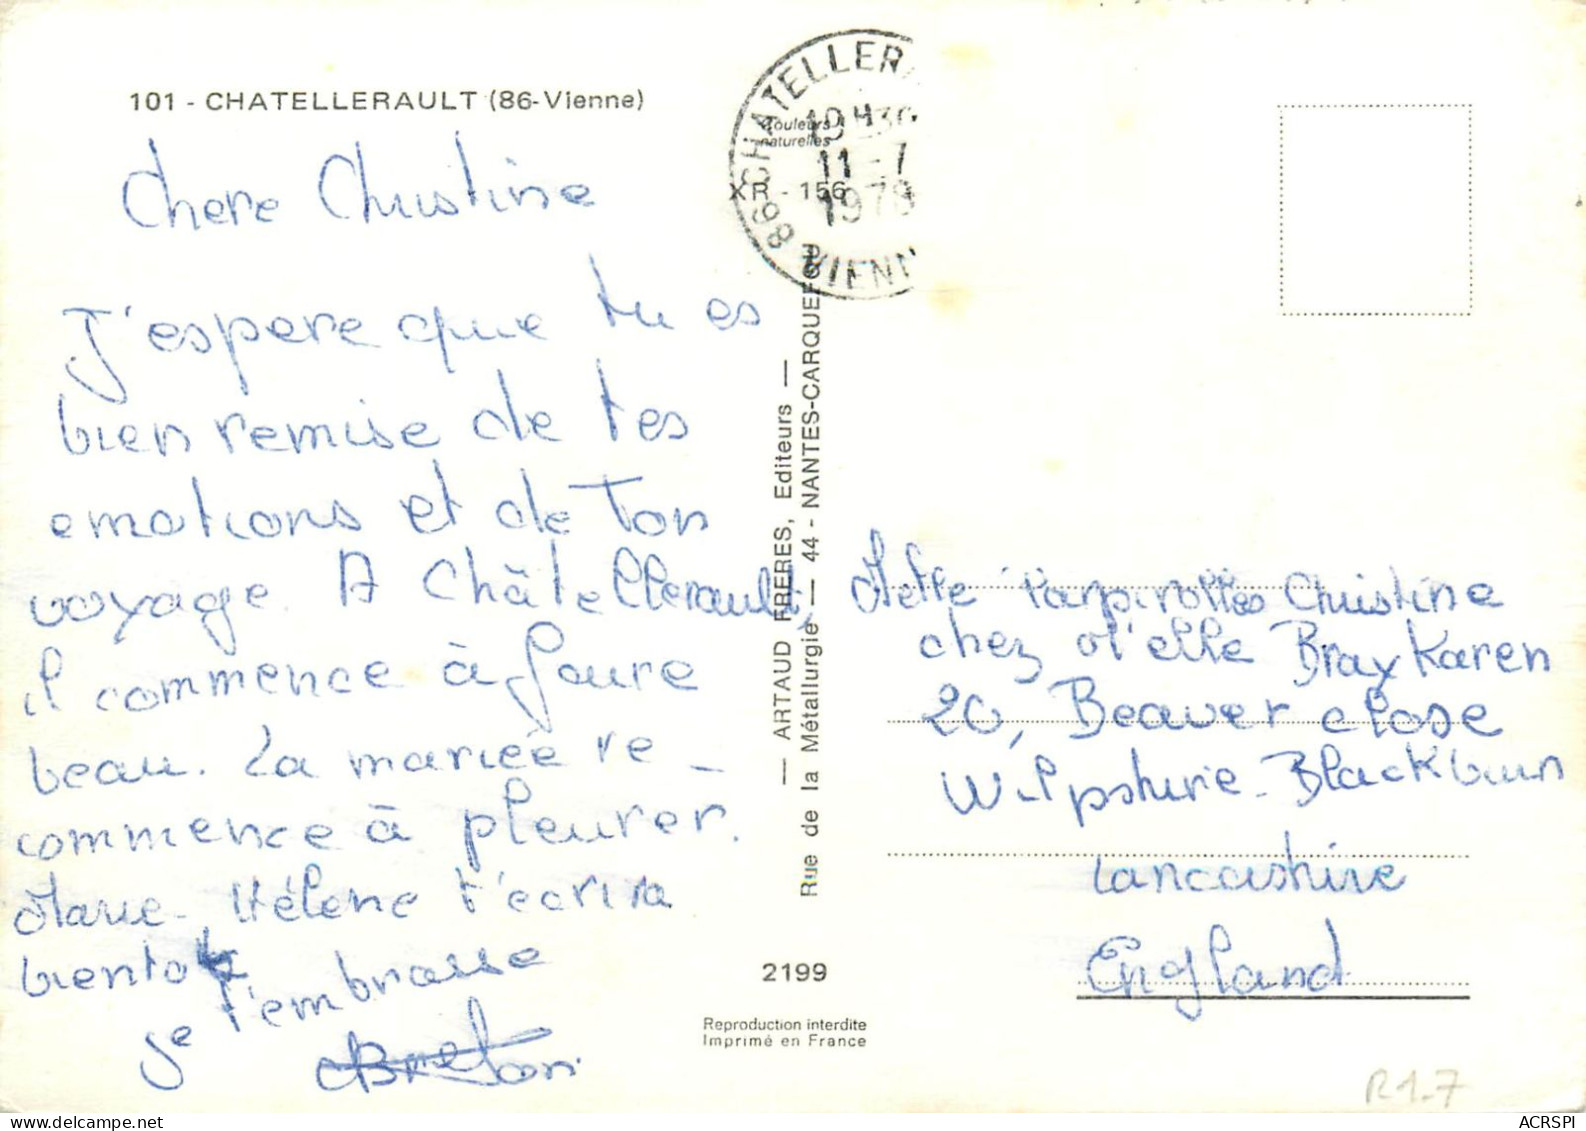 101 - CHATELLERAULT (86-Vienne)
Chere Christine
J'espere que tu es
bien remise de tes
emotions et de ton
voyage. A Châtellerault,
il commence à faire
beau. La mariée re -
commence à pleurer.
Marie-Hélène t'écrira
bientot
Je t'embrasse
86 CHATELLERA
19H30
11 - 7
1979
VIENN
Couleurs
naturelles
XR - 156
— ARTAUD FRERES, Editeurs —
Rue de la Métallurgie — 44 - NANTES-CARQUEFO
2199
Reproduction interdite
Imprimé en France
Melle Christine
chez Melle Bray Karen
20, Beaver close
Wilpshire - Blackburn
Lancashire
England
R1-7
ACRSPI